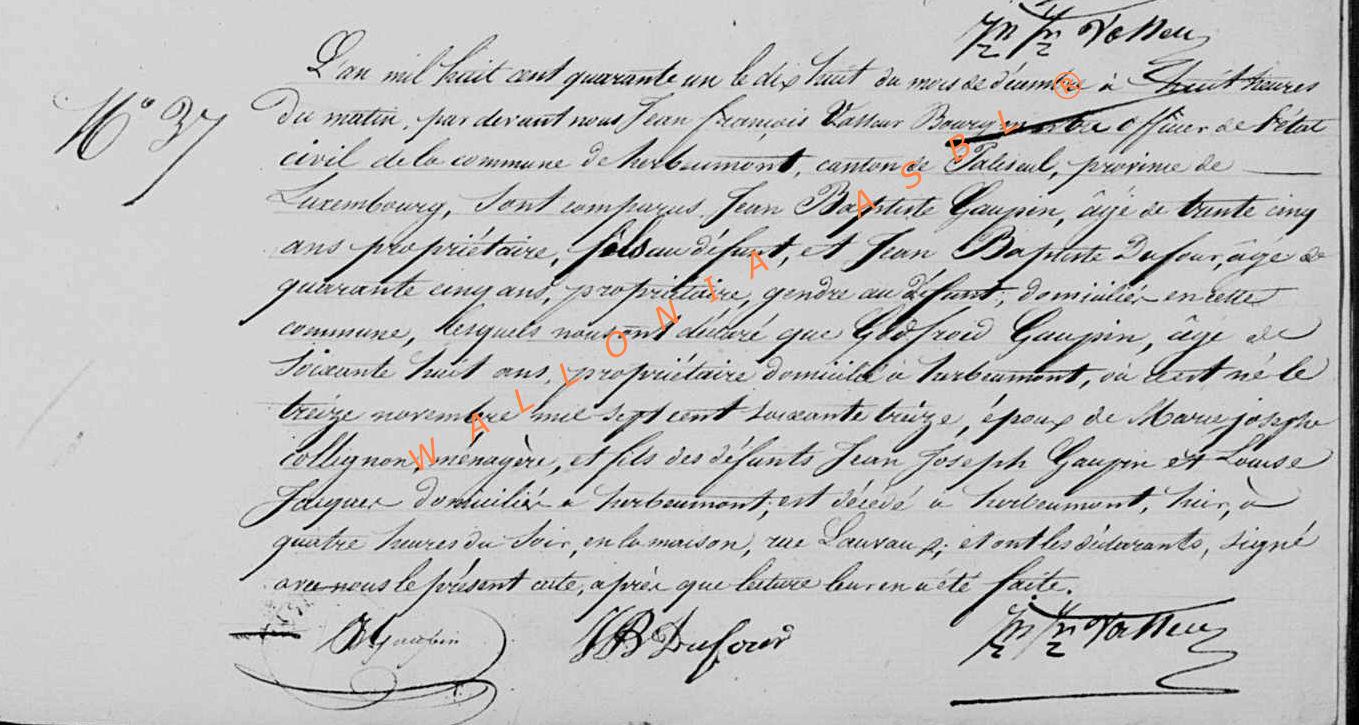 Jn Fn Vasseur
L'an mil huit cent quarante un le dix huit du mois de décembre à huit heures
N° 37
Du matin, par devant nous Jean françois Vasseur Bourgmestre officier de l'état
civil de la commune de herbeumont, canton de Paliseul, province de
Luxembourg, sont comparus Jean Baptiste Gaupin, âgé de trente cinq
ans propriétaire, fils au défunt, et Jean Baptiste Dufour, âgé de
quarante cinq ans, propriétaire, gendre au défunt, domiciliés en cette
commune, lesquels nous ont déclaré que Godfroid Gaupin, âgé de
soixante huit ans, propriétaire domicilié à herbeumont, où il est né le
treize novembre mil sept cent soixante treize, époux de Marie josephe
Collignon, ménagère, et fils des défunts Jean Joseph Gaupin et Louise
Jacques domiciliés à herbeumont, est décédé à herbeumont, hier, à
quatre heures du soir, en la maison, rue Lauvaux, et ont les déclarants, signé
avec nous le présent acte, après que lecture leur en a été faite.
JBGaupin JB Dufour Jn Fn Vasseur
WALLONIA ASBL ®